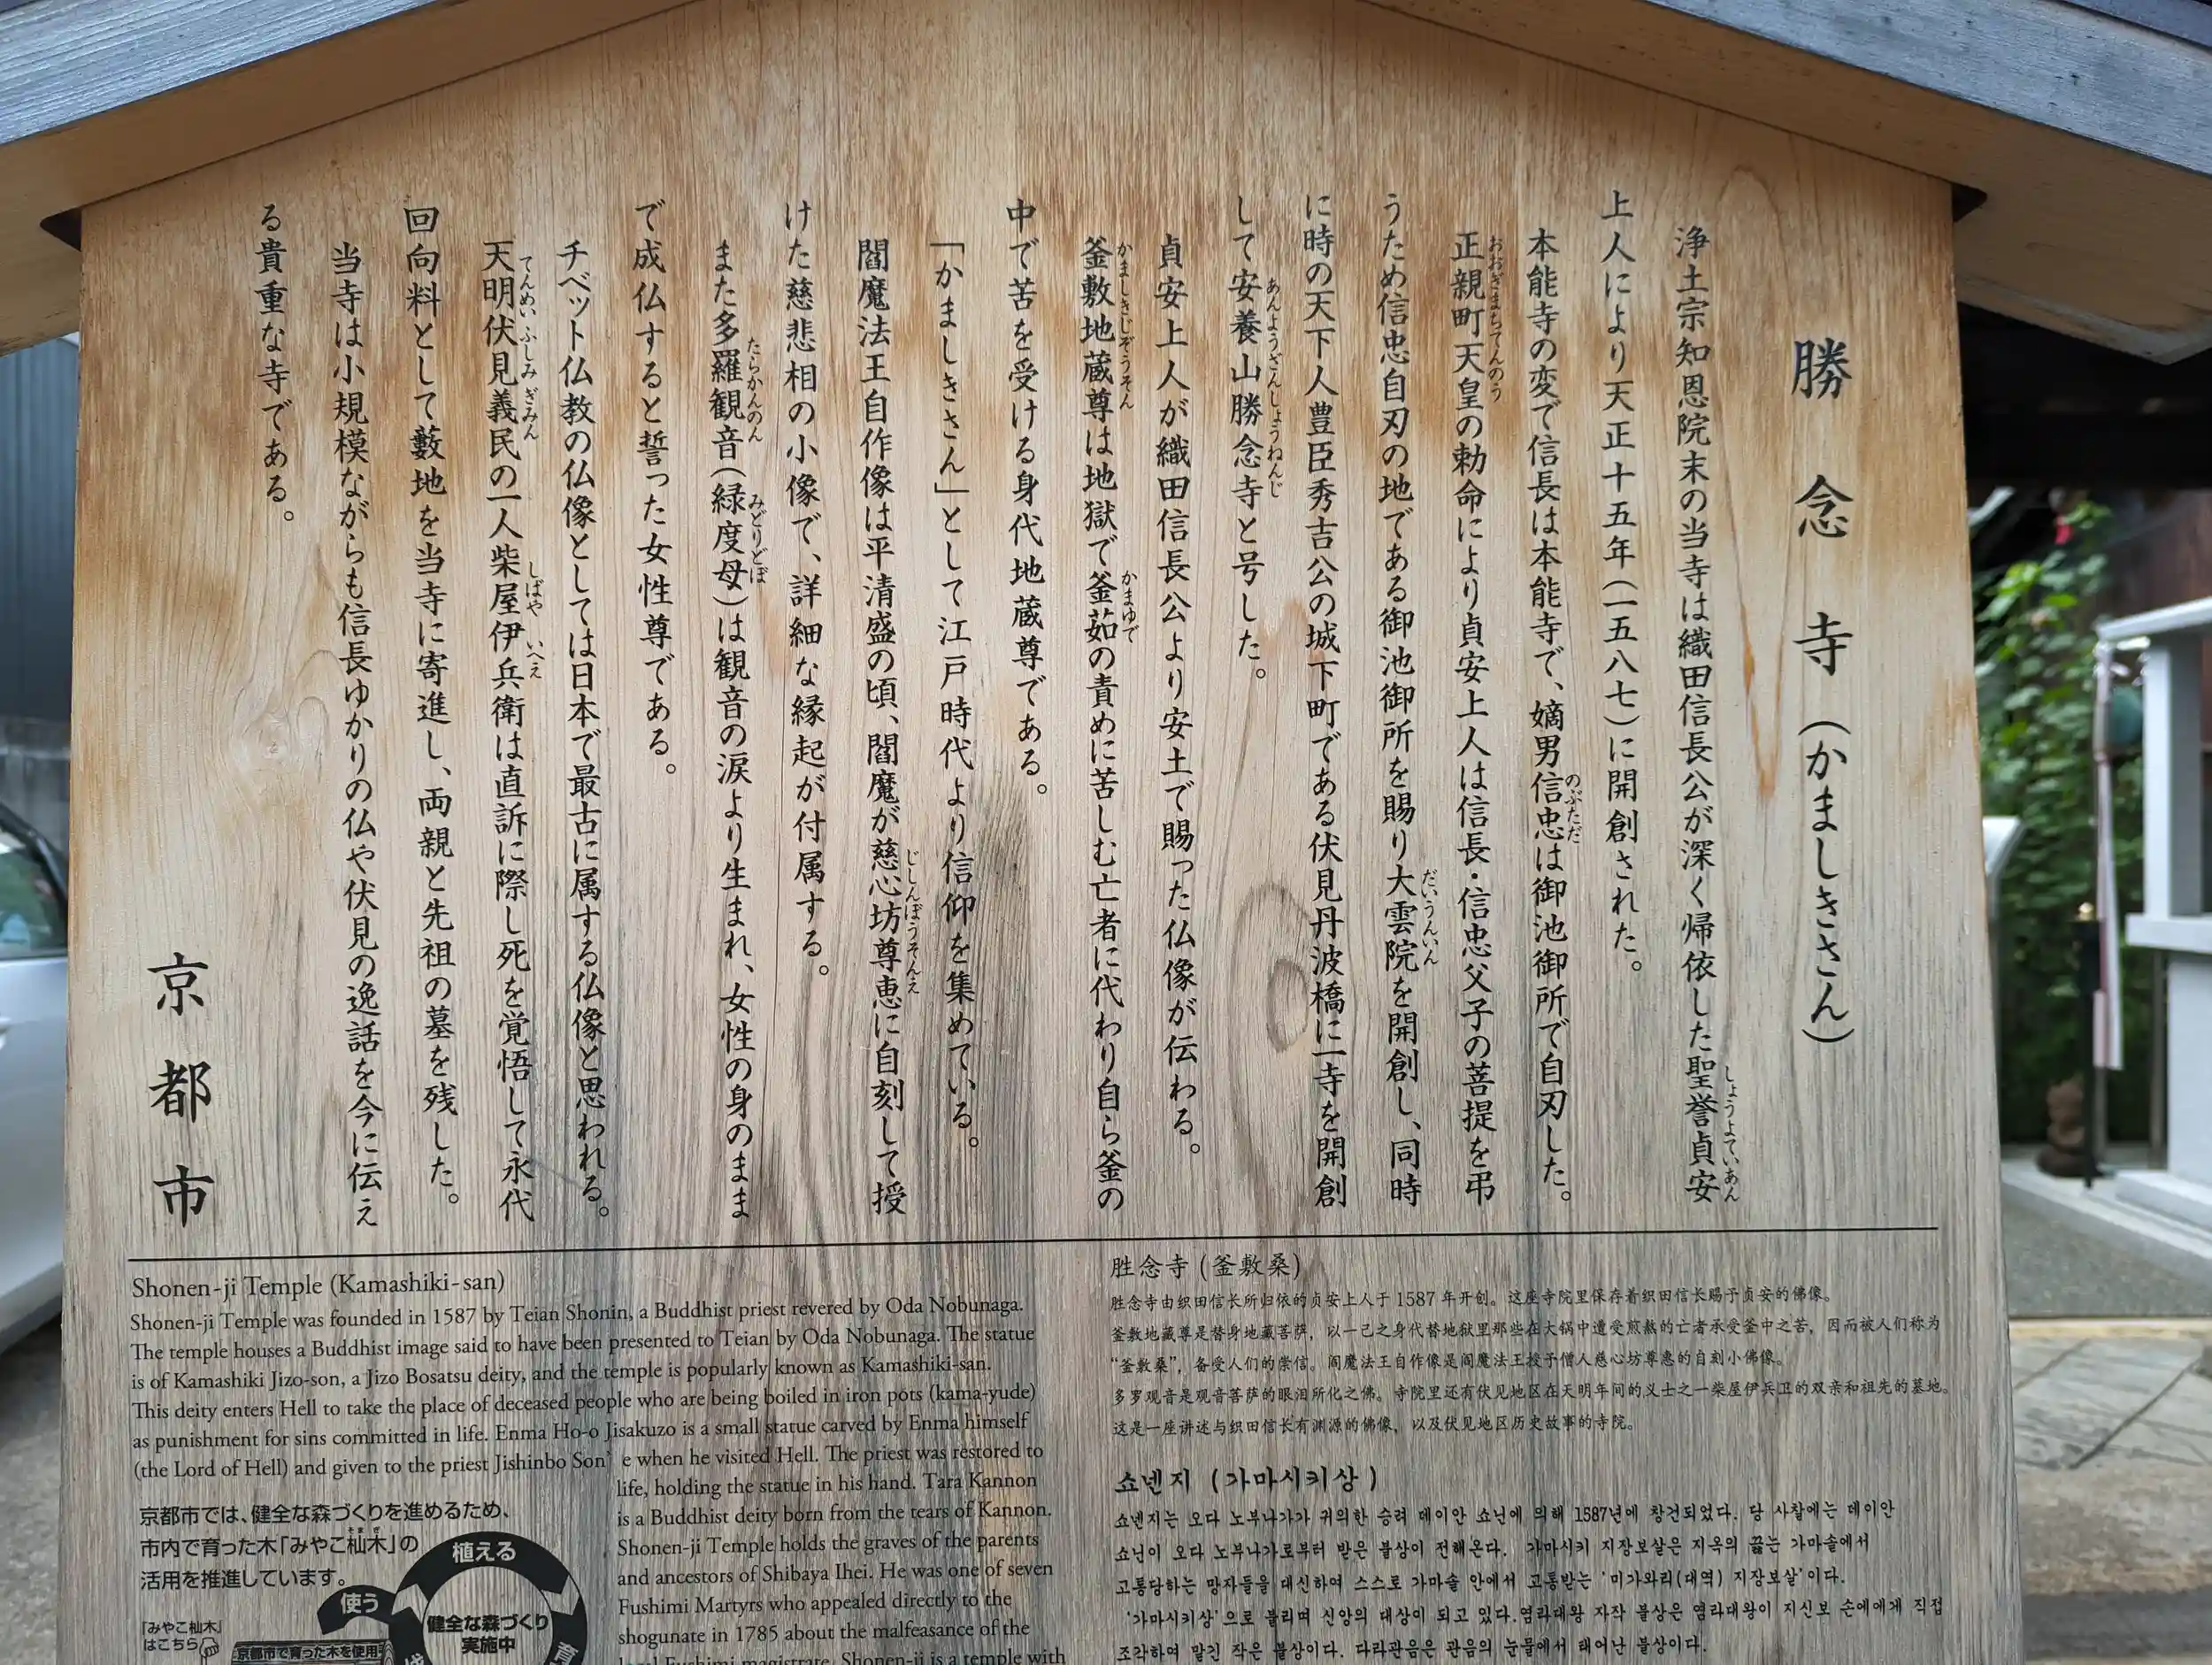 勝念寺(かましきさん)
浄土宗知恩院末の当寺は織田信長公が深く帰依した聖誉貞安
上人により天正十五年(一五八七)に開創された。
本能寺の変で信長は本能寺で、嫡男信忠は御池御所で自刃した。
正親町天皇の勅命により貞安上人は信長・信忠父子の菩提を弔
うため信忠自刃の地である御池御所を賜り大雲院を開創し、同時
に時の天下人豊臣秀吉公の城下町である伏見丹波橋に一寺を開創
して安養山勝念寺と号した。
貞安上人が織田信長公より安土で賜った仏像が伝わる。
釜敷地蔵尊は地獄で釜茹の責めに苦しむ亡者に代わり自ら釜の
中で苦を受ける身代地蔵尊である。
「かましきさん」として江戸時代より信仰を集めている。
閻魔法王自作像は平清盛の頃、閻魔が慈心坊尊恵に自刻して授
けた慈悲相の小像で、詳細な縁起が付属する。
また多羅観音(緑度母)は観音の涙より生まれ、女性の身のまま
で成仏すると誓った女性尊である。
チベット仏教の仏像としては日本で最古に属する仏像と思われる。
天明伏見義民の一人柴屋伊兵衛は直訴に際し死を覚悟して永代
回向料として藪地を当寺に寄進し、両親と先祖の墓を残した。
当寺は小規模ながらも信長ゆかりの仏や伏見の逸話を今に伝え
る貴重な寺である。
京都市
Shonen-ji Temple (Kamashiki-san)
Shonen-ji Temple was founded in 1587 by Teian Shonin, a Buddhist priest revered by Oda Nobunaga.
The temple houses a Buddhist image said to have been presented to Teian by Oda Nobunaga. The statue
is of Kamashiki Jizo-son, a Jizo Bosatsu deity, and the temple is popularly known as Kamashiki-san.
This deity enters Hell to take the place of deceased people who are being boiled in iron pots (kama-yude)
as punishment for sins committed in life. Enma Ho-o Jisakuzo is a small statue carved by Enma himself
(the Lord of Hell) and given to the priest Jishinbo Son' e when he visited Hell. The priest was restored to
life, holding the statue in his hand. Tara Kannon
is a Buddhist deity born from the tears of Kannon.
Shonen-ji Temple holds the graves of the parents
and ancestors of Shibaya Ihei. He was one of seven
Fushimi Martyrs who appealed directly to the
shogunate in 1785 about the malfeasance of the
local Fushimi magistrate. Shonen-ji is a temple with
京都市では、健全な森づくりを進めるため、
市内で育った木「みやこ杣木」の
活用を推進しています。
「みやこ杣木」
はこちら
植える
使う
育
健全な森づくり
実施中
京都市で育った木を使用
胜念寺(釜敷桑)
胜念寺由织田信长所归依的贞安上人于1587年开创。这座寺院里保存着织田信长赐予贞安的佛像。
釜敷地藏尊是替身地藏菩萨，以一己之身代替地狱里那些在大锅中遭受煎熬的亡者承受釜中之苦，因而被人们称为
“釜敷桑”，备受人们的崇信。阎魔法王自作像是阎魔法王授予僧人慈心坊尊惠的自刻小佛像。
多罗观音是观音菩萨的眼泪所化之佛。寺院里还有伏见地区在天明年间的义士之一柴屋伊兵卫的双亲和祖先的墓地。
这是一座讲述与织田信长有渊源的佛像，以及伏见地区历史故事的寺院。
쇼넨지 (가마시키상)
쇼넨지는 오다 노부나가가 귀의한 승려 데이안 쇼닌에 의해 1587년에 창건되었다. 당 사찰에는 데이안
쇼닌이 오다 노부나가로부터 받은 불상이 전해온다. 가마시키 지장보살은 지옥의 끓는 가마솥에서
고통당하는 망자들을 대신하여 스스로 가마솥 안에서 고통받는 '미가와리(대역) 지장보살'이다.
'가마시키상'으로 불리며 신앙의 대상이 되고 있다.염라대왕 자작 불상은 염라대왕이 지신보 손에에게 직접
조각하여 맡긴 작은 불상이다. 다라관음은 관음의 눈물에서 태어난 불상이다.